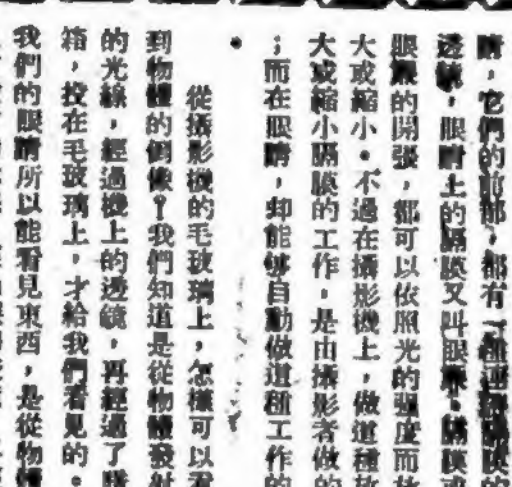 睛，它們的前部，都有一種連
透鏡，眼睛上的隔膜又叫眼簾，隔膜或
眼簾的開張，都可以依照光的强度而放
大或縮小。不過在攝影機上，做這種放
大或縮小隔膜的工作，是由攝影者做的
；而在眼睛，却能够自動做這種工作的
。
從攝影機的毛玻璃上，怎樣可以看
到物體的倒像？我們知道是從物體發射
的光線，經過機上的透鏡，再經過了
箱，投在毛玻璃上，才給我們看見的。
我們的眼睛所以能看見東西，是從物體